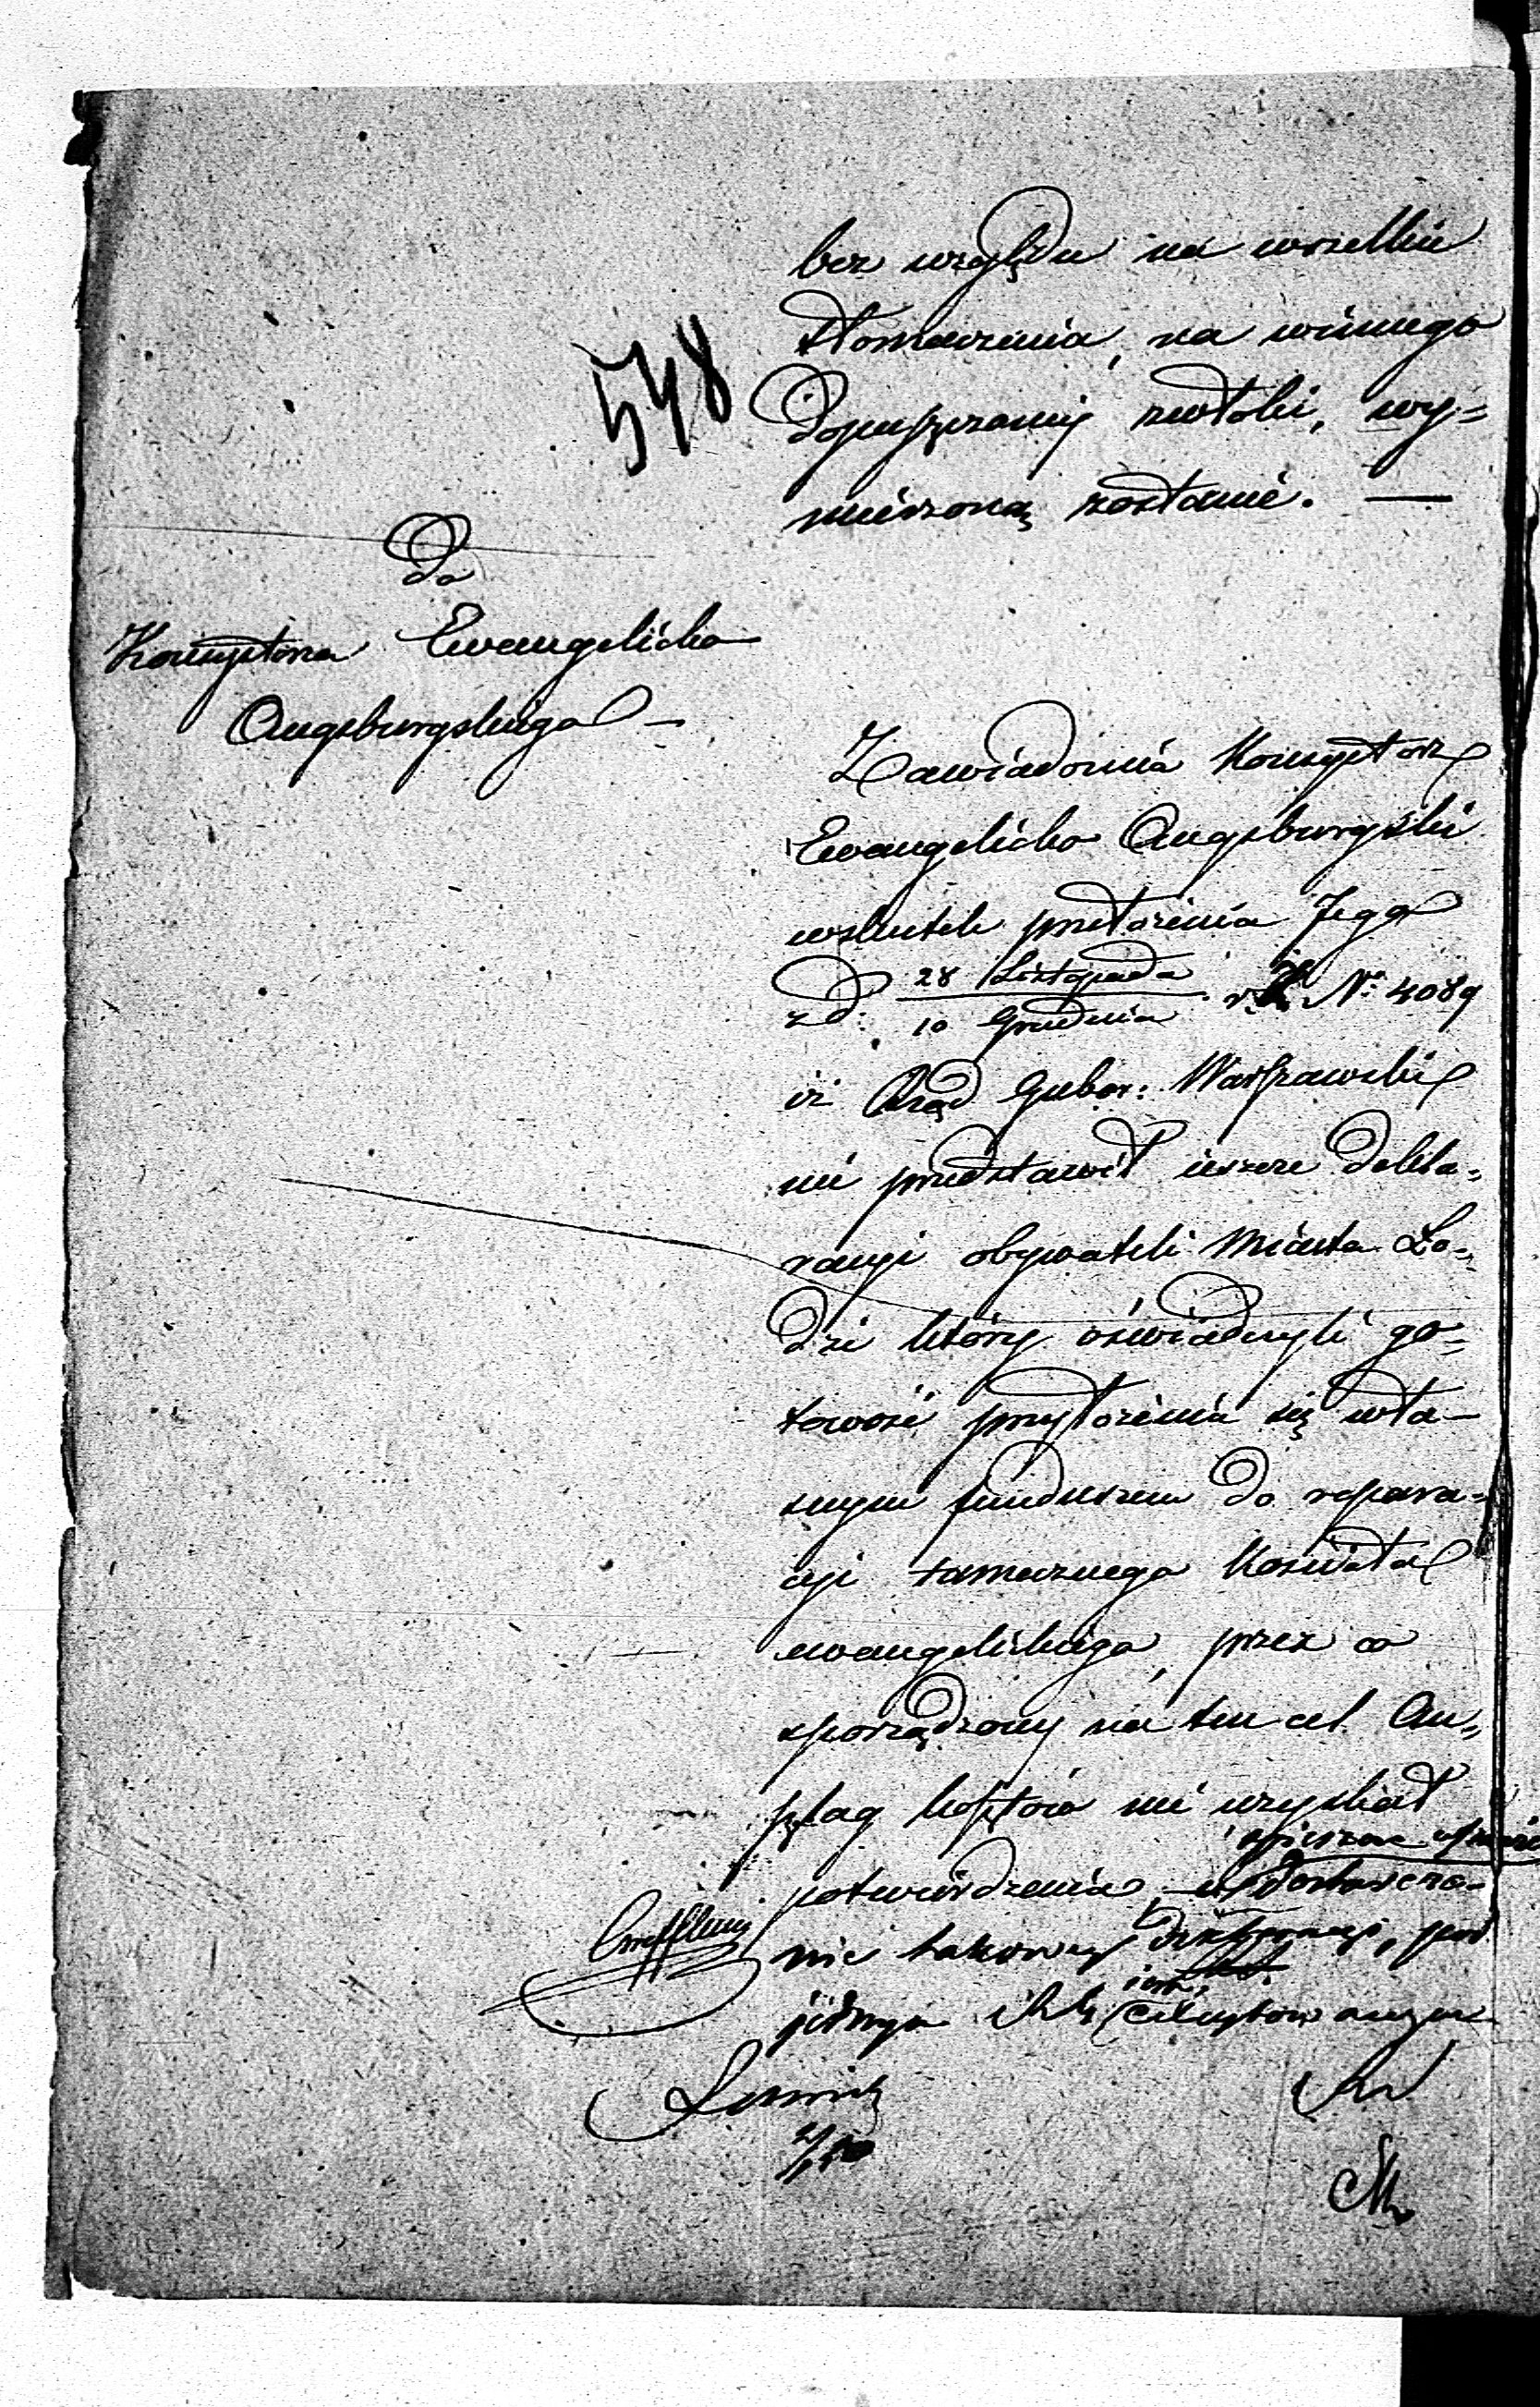 bez względu na wszelkie
tłomaczenia, na winnego
dopuszczonéj zwłoki, wy=
mierzoną zostanie. —
548
Do
Konsystorza Ewangelicko
Augsburgskiego —
Zawiadomia Konsystorz
Ewangelicko Augsburgski
wskutek przełożenia Jego
z d. 28 Listopada / 10 Grudnia r. z. No 4089
iż Rząd Guber: Warszawski
nie przedstawił ieszcze dekla=
racyi obywateli Miasta Ło=
dzi którzy oświadczyli go=
towość przyłożenia się wła—
snym funduszem do repara=
cyi tamecznego Kościoła
ewangelickiego, przez co
sporządzony na ten cel An=
szlag kosztów nie uzyskał
spieszne
potwierdzenia, dostarcze=
nie takowéj deklaracyi, pod
jest